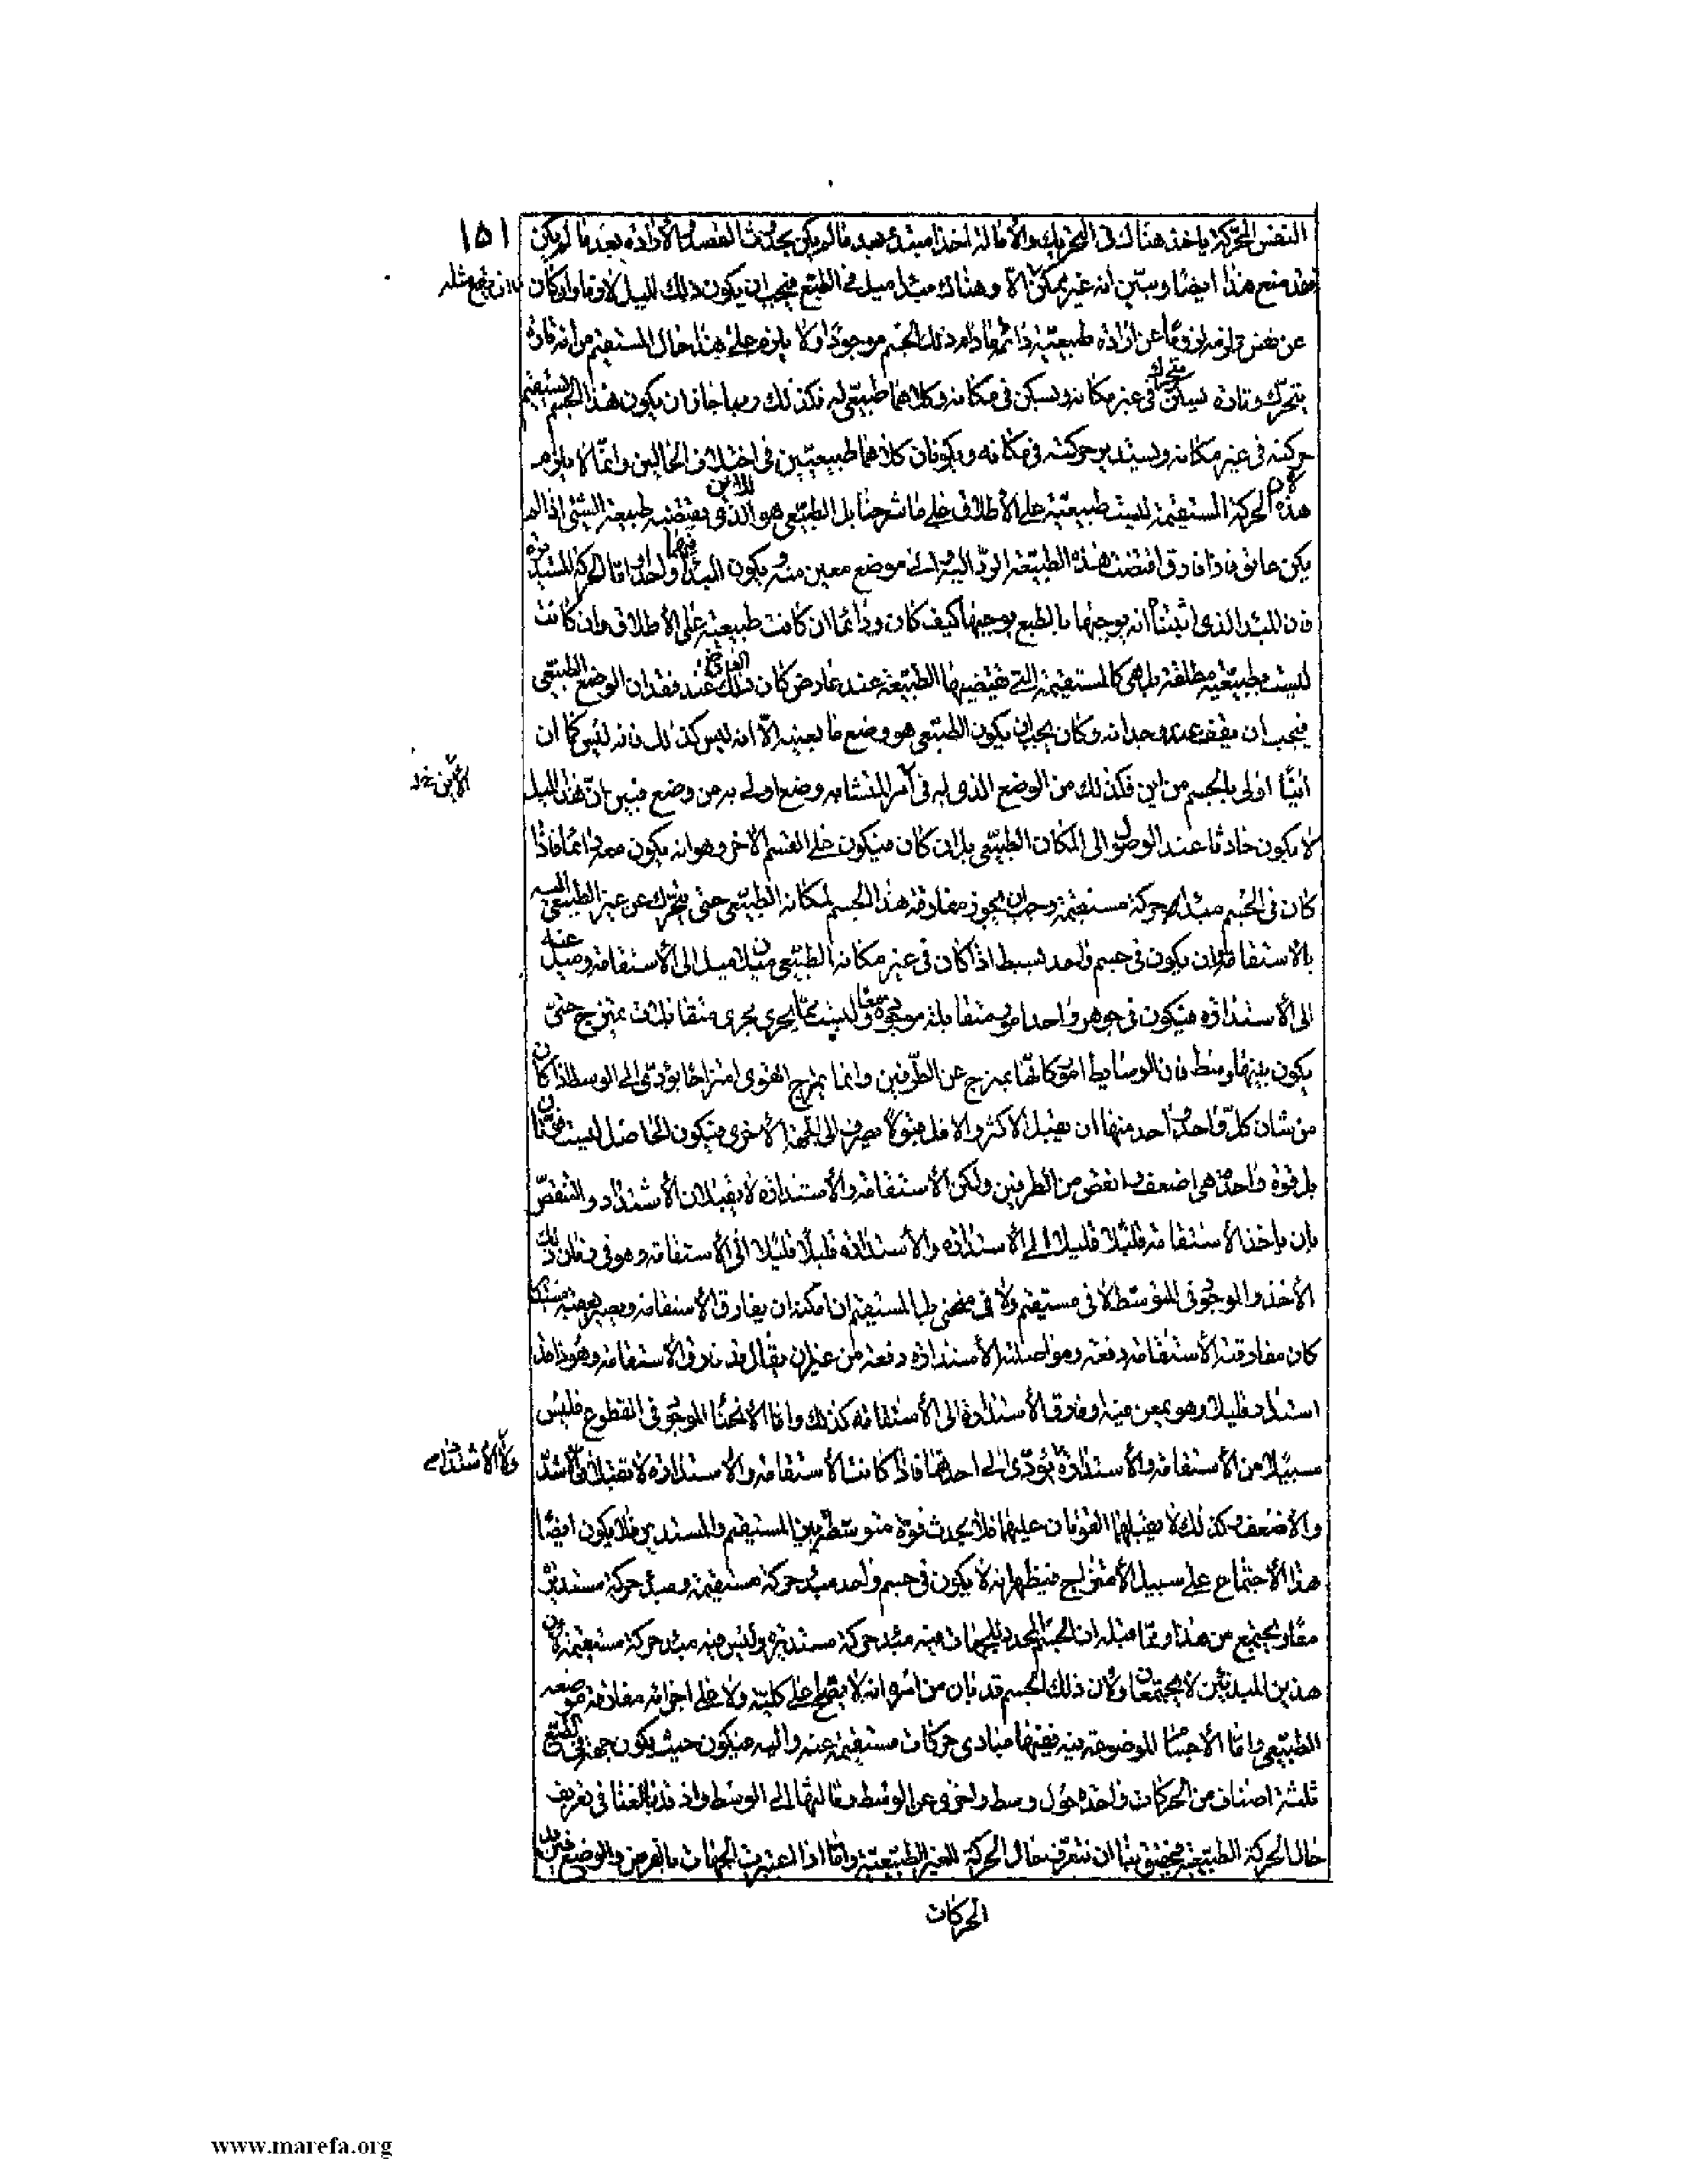 ١٥١
النفس المحركة ياخذ هناك فى التحريك والأمالة اخذا مبتدئ بعد ما لم يكن بحدوث القصد والأرادة بعد ما لم يكن
فقد منع هذا ايضا وبين انه غير ممكن الا وهناك مبدا ميل فى الطبع فيجب ان يكون ذلك الميل لازما وان كان
عن نفس لزومه لزوما عن ارادة طبيعية دائمة مادام ذلك الجسم موجودا ولا يلزم على هذا حال المستقيم من انه تارة
يتحرك وتارة يسكن فى غير مكانه ويسكن فى مكانه وكلاهما طبيعى له فكذلك ربما جاز ان يكون هذا الجسم يستقيم
حركته فى غير مكانه ويستدير حركته فى مكانه ويكونان كلاهما طبيعيتين فى اختلاف الحالين وانما لا يلزم
هذه الحركة المستقيمة ليست طبيعية على الأطلاق على ما شرحنا بل الطبيعى هو الذى يقتضيه طبيعة الشئ اذا لم
يكن عائق فاذا فارق اقتضت هذه الطبيعة الرد اليه الى موضع معين منه ويكون المبدأ واحدا واما الحركة المستديرة
فان المبدا الذى اثبتنا انه يوجبها بالطبع يوجبها كيف كان ودائما ان كانت طبيعية على الأطلاق وان كانت
ليست طبيعية مطلقة بل هى كالمستقيمة التى تقتضيها الطبيعة عند عارض كان ذلك عند فقدان الوضع الطبيعى
فيجب ان يقف عند وجدانه وكان يجب ان يكون الطبيعى هو وضع ما بعينه الا انه ليس كذلك فانه ليس كما ان
اينا اولى بالجسم من اين فكذلك من الوضع الذى له فى المتشابه وضع اولى به من وضع فبين ان هذا الميل
لا يكون حادثا عند الوصول الى المكان الطبيعى بل ان كان فيكون على القسم الآخر وهو انه يكون معه دائما فاذا
كان فى الجسم مبدا حركة مستقيمة وجب ان يجوز مفارقة هذا الجسم لمكانه الطبيعى حتى يتحرك عن غير الطبيعى اليه
بالاستقامة وان يكون فى جسم واحد بسيط اذا كان فى غير مكانه الطبيعى ميلان ميل الى الأستقامة وميل عنه
الى الأستدارة فيكون فى جوهر واحد امور متقابلة موجودة معا وليست مما يجرى مجرى متقابلات تمتزج حتى
يكون بينها وسط فان الوسايط امور كانها تمزج عن الطرفين وانما يمازج القوى امتزاجا يؤدى الى الوسط اذا كان
من شان كل واحد واحد منها ان يقبل الاكثر والاقل قبولا يصرف الى الجهة الأخرى فيكون الحاصل ليست
بل قوة واحدة هى اضعف وانقص من الطرفين ولكن الأستقامة والأستدارة لا يقبلان الأشتداد والتنقص
بان ياخذ الأستقامة قليلا قليلا الى الأستدارة والأستدارة قليلا قليلا الى الأستقامة وهو فى ذلك
الأخذ والموجود فى المتوسط لا فى مستقيم ولا فى منحنى بل المستقيم ان امكنه ان يفارق الأستقامة ويصير بعينه
كان مفارقته الأستقامة دفعة ومواصلته الأستدارة دفعة من غير ان يقال قد فارق الأستقامة وهو
استدار قليلا وهو يمعن فيه او فارق الأستدارة الى الأستقامة كذلك واما الأنحناء الموجود فى القطوع فليس
سبيلا من الأستقامة والأستدارة يؤدى الى احدهما فاذا كانت الأستقامة والأستدارة لا تقبلان الأشد
والأضعف كذلك لا يقبلها القوتان عليهما فلا يحدث قوة متوسطة بين المستقيم والمستدير فلا يكون ايضا
هذا الأجتماع على سبيل الأمتزاج فيظهر انه لا يكون فى جسم واحد مبدا حركة مستقيمة ومبدا حركة مستديرة
معا ويجتمع من هذا ومما قبله ان الجسم المحدد للجهات فيه مبدا حركة مستديرة وليس فيه مبدا حركة مستقيمة لان
هذين المبدئين لا يجتمعان ولأن ذلك الجسم قد بان من امره انه لا يصلح على كليته ولا على اجزائه مفارقة موضعه
الطبيعى واما الأجسام الموضوعة فيه ففيها مبادى حركات مستقيمة عنه واليه فيكون حيث يكون جهة فى الطبع
ثلثة اصناف من الحركات واحدة حول وسط واخرى عن الوسط وثالثها الى الوسط واذ قد بالغنا فى تعريف
حال الحركة الطبيعية فحقيق بنا ان نتعرف حال الحركة الغير الطبيعية واما اذا اعتبرت الجهات بالفرض والوضع
الحركات
www.marefa.org